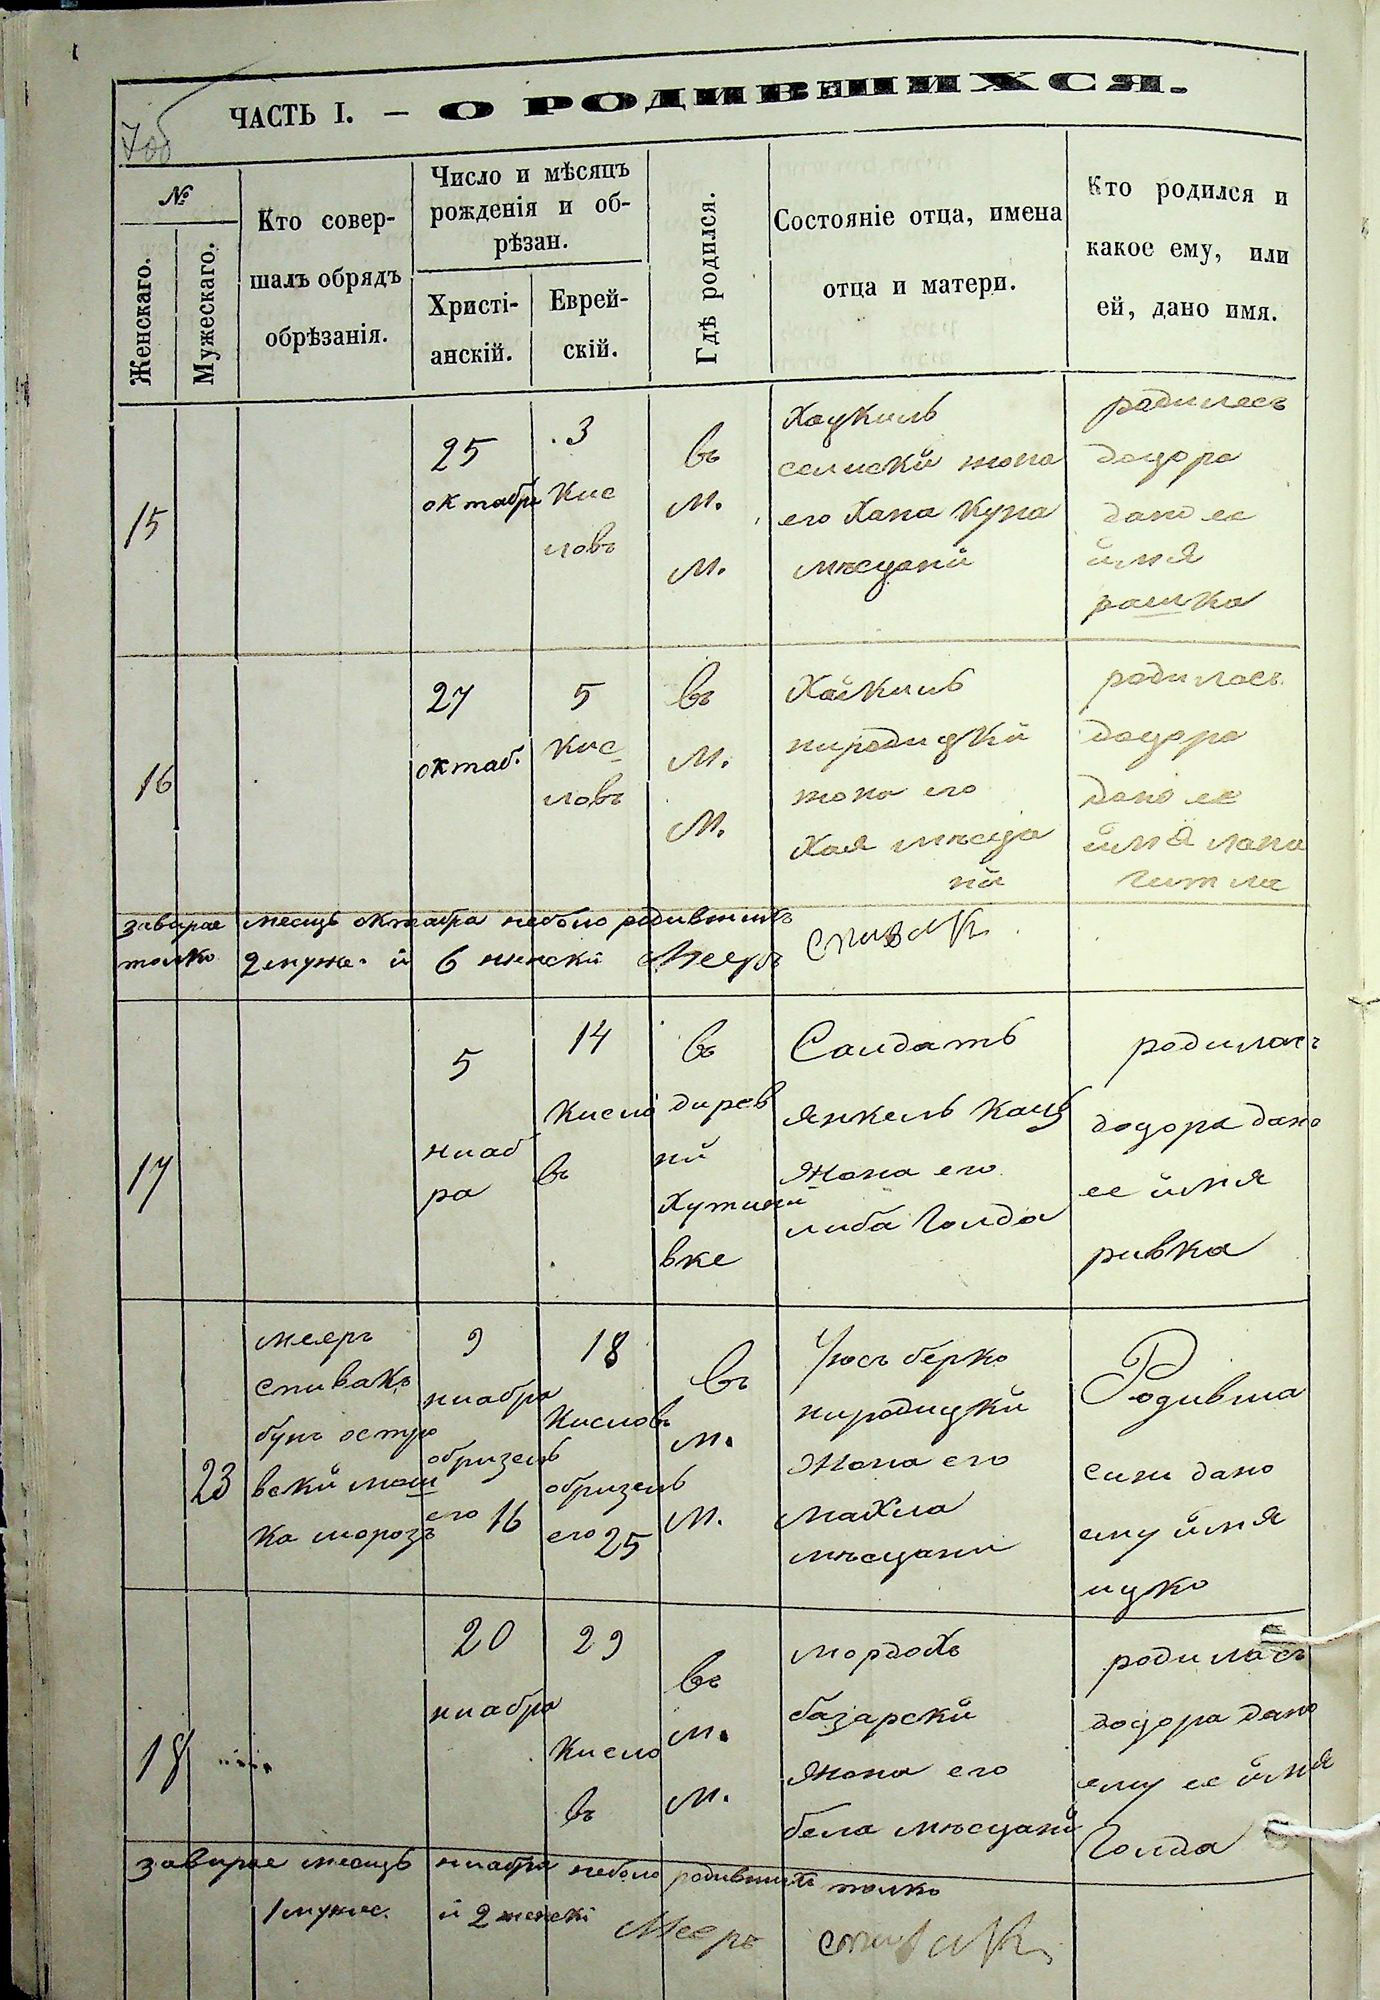 ЧАСТЬ I. — О РОДИВШИХСЯ.
№
Женскаго.
Мужескаго.
Кто совер-
шалъ обрядъ
обрѣзанія.
Число и мѣсяцъ
рожденія и об-
рѣзан.
Христі-
анскій.
Еврей-
скій.
Гдѣ родился.
Состояніе отца, имена
отца и матери.
Кто родился и
какое ему, или
ей, дано имя.
15
25
октабра
3
Кис
ловъ
въ
М.
М.
Хацкиль
жона
его Хана
мѣсцани
родилась
доцора
дано ее
имя
рашка
16
27
октаб.
5
Кис
ловъ
въ
М.
М.
Хацкиль
пиродицкй
жона его
Хая мѣсца
ни
родилась
доцора
дано ее
имя
гитля
завирае месяцъ октабра неболо родившихъ
толко 2 муже. й 6 женски Мееръ спивак
17
5
ниаб
ра
14
Кисло
въ
въ
дирев
ни
вке
Солдатъ
янкель Кацъ
жона его
либа Голда
родилась
доцора дано
ее имя
ривка
23
мееръ
спивакъ
остро
вскй мош
ка морозъ
9
ниабра
обризень
его 16
18
Кисловъ
обризень
его 25
въ
м.
м.
Юсъ берко
пиродицкй
жона его
махля
мѣсцани
Родився
синъ дано
ему имя
ицко
18
20
ниабра
29
Кисло
въ
въ
м.
м.
мордохъ
базарскй
жона его
бела мѣсцани
родилась
доцора дано
ему ее имя
Голда
завирае месяцъ ниабра неболо родившихъ толко
1 муже. й 2 женскі Мееръ спивак